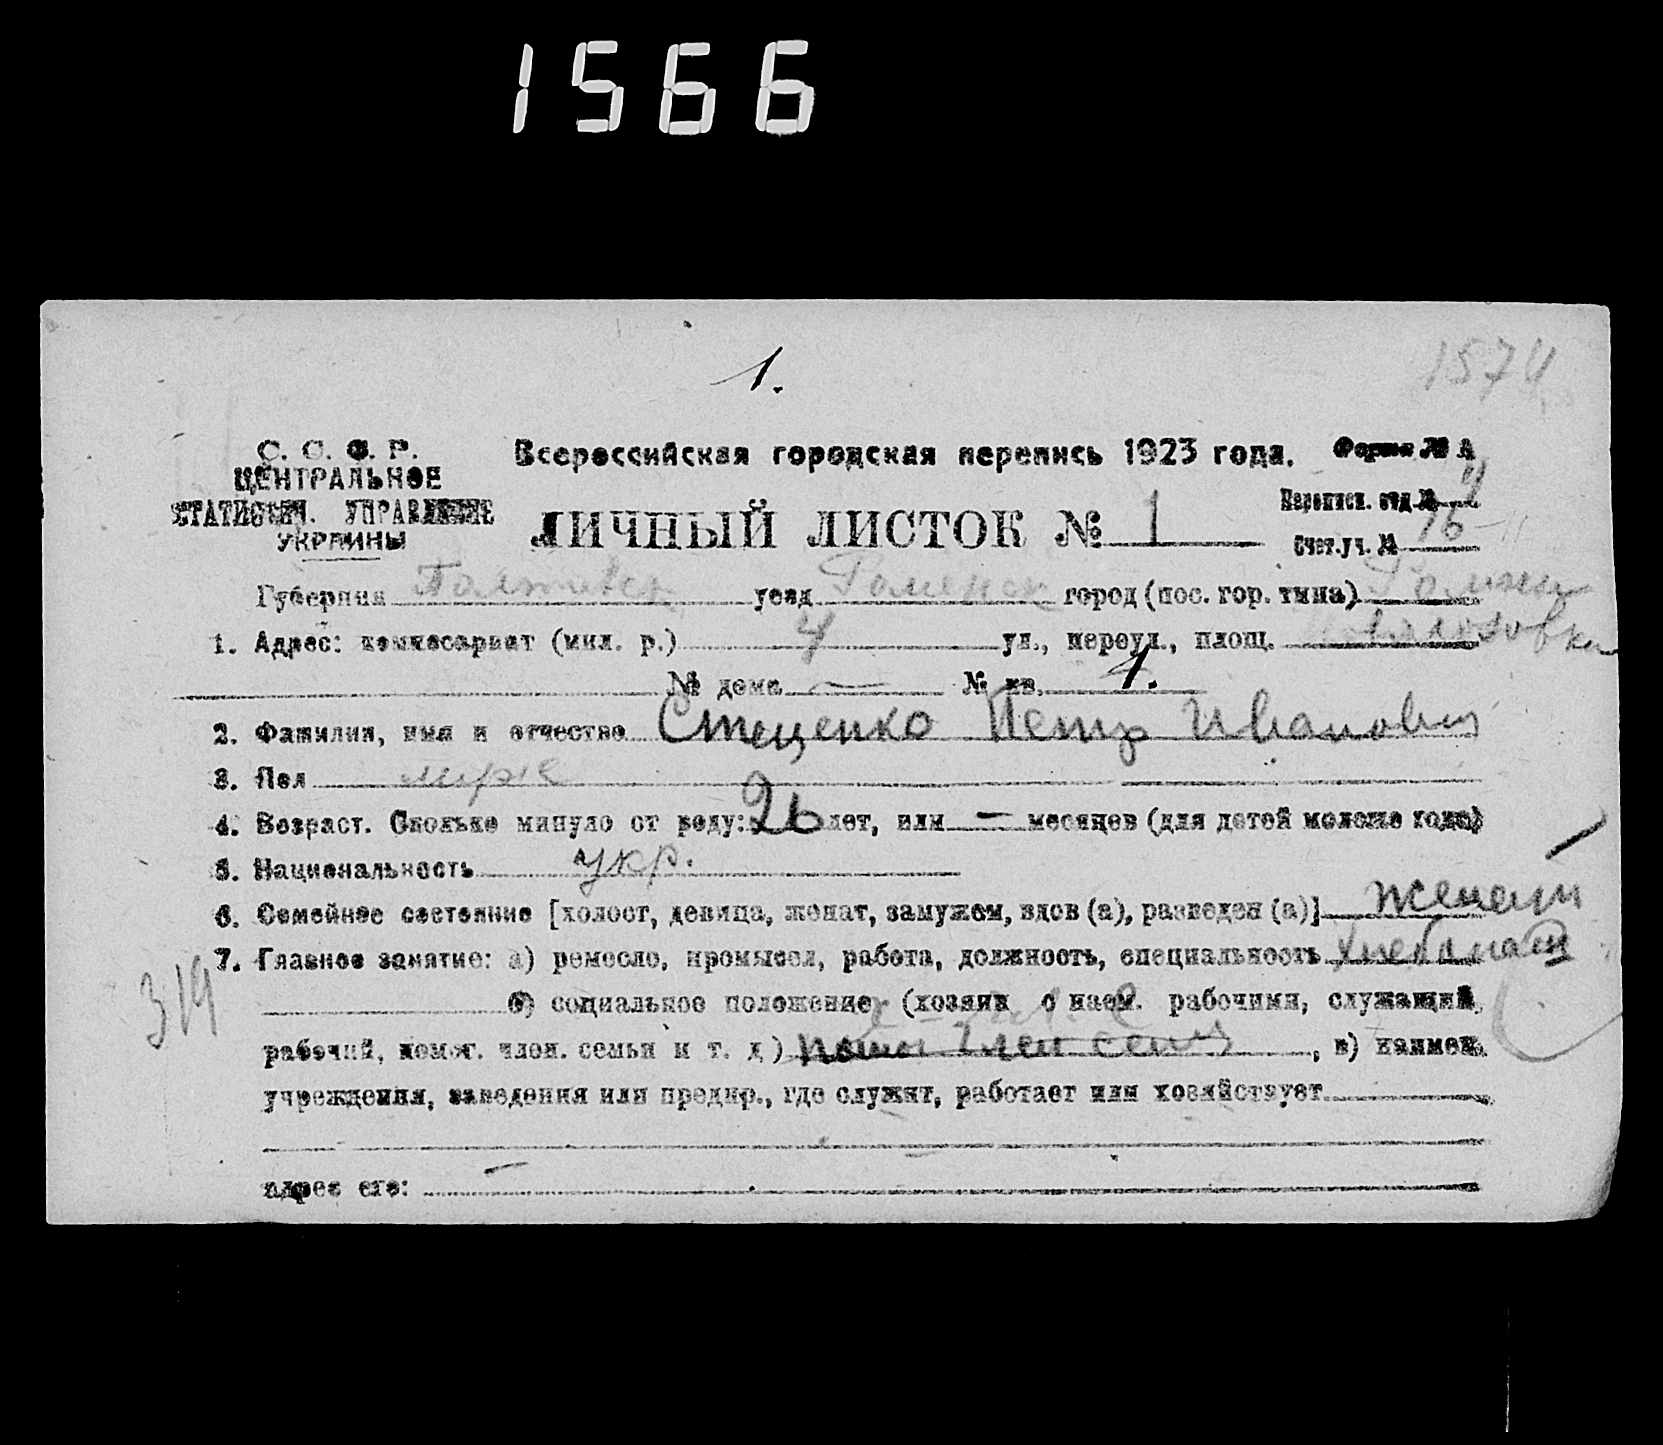 1566
1.
1574
С. С. Ф. Р. Всероссийская городская перепись 1923 года. Форма № А
ЦЕНТРАЛЬНОЕ
СТАТИСТИЧ. УПРАВЛЕНИЕ
УКРАИНЫ
Переписн. отд. № 4
ЛИЧНЫЙ ЛИСТОК № 1
Счет. уч. № 16
Губерния Полтавск уезд Роменск город (пос. гор. типа) Ромны
1. Адрес: комиссариат (мил. р.) 4 ул., переул., площ.
№ дома — № кв. 1.
2. Фамилия, имя и отчество Стеценко Петр Иванович
3. Пол муж
4. Возраст. Сколько минуло от роду: 26 лет, или — месяцев (для детей моложе года)
5. Национальность укр.
6. Семейное состояние [холост, девица, женат, замужем, вдов (а), разведен (а)] женат
7. Главное занятие: а) ремесло, промысел, работа, должность, специальность хлебопаш
319
б) социальное положение (хозяин с наем. рабочими, служащий,
рабочий, помог. член. семьи и т. д) член семьи, в) наимен.
учреждения, заведения или предпр., где служит, работает или хозяйствует
адрес его: —